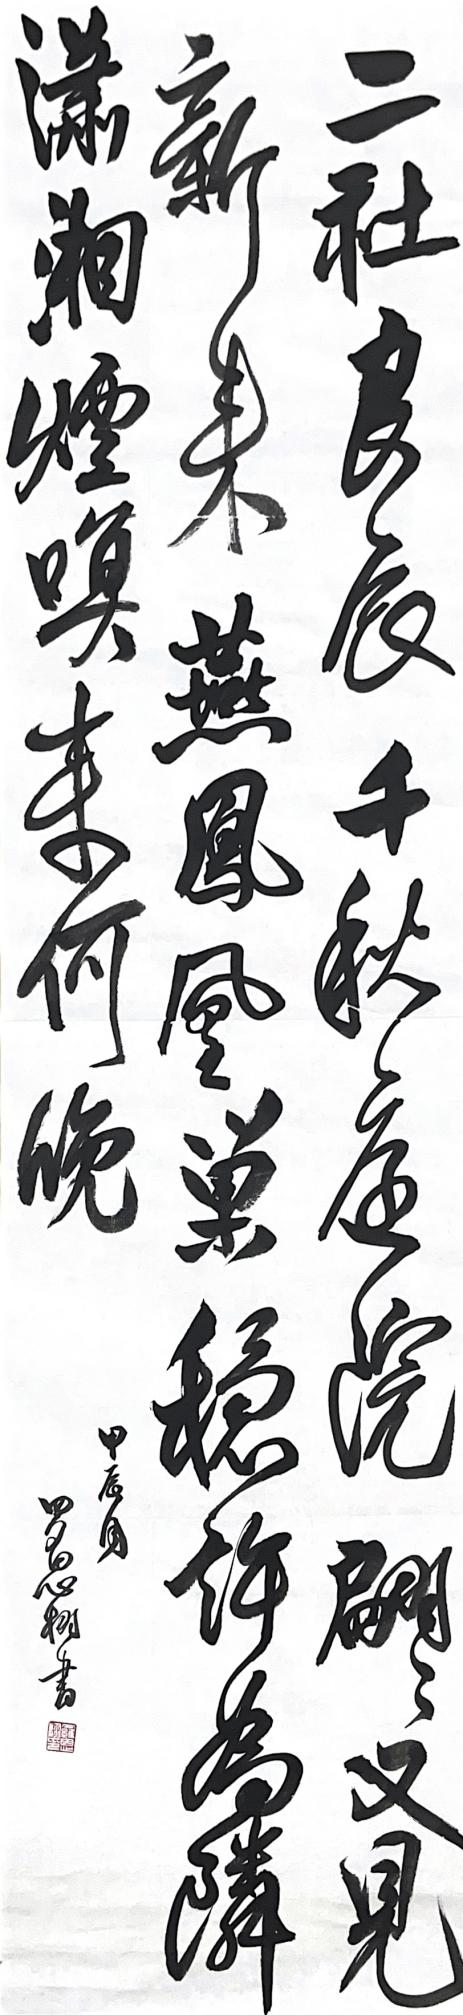 二社良辰千秋庭院翩〻又見
新来燕鳳凰巢穩許為隣
瀟湘煙暝来何晚
甲辰月
書